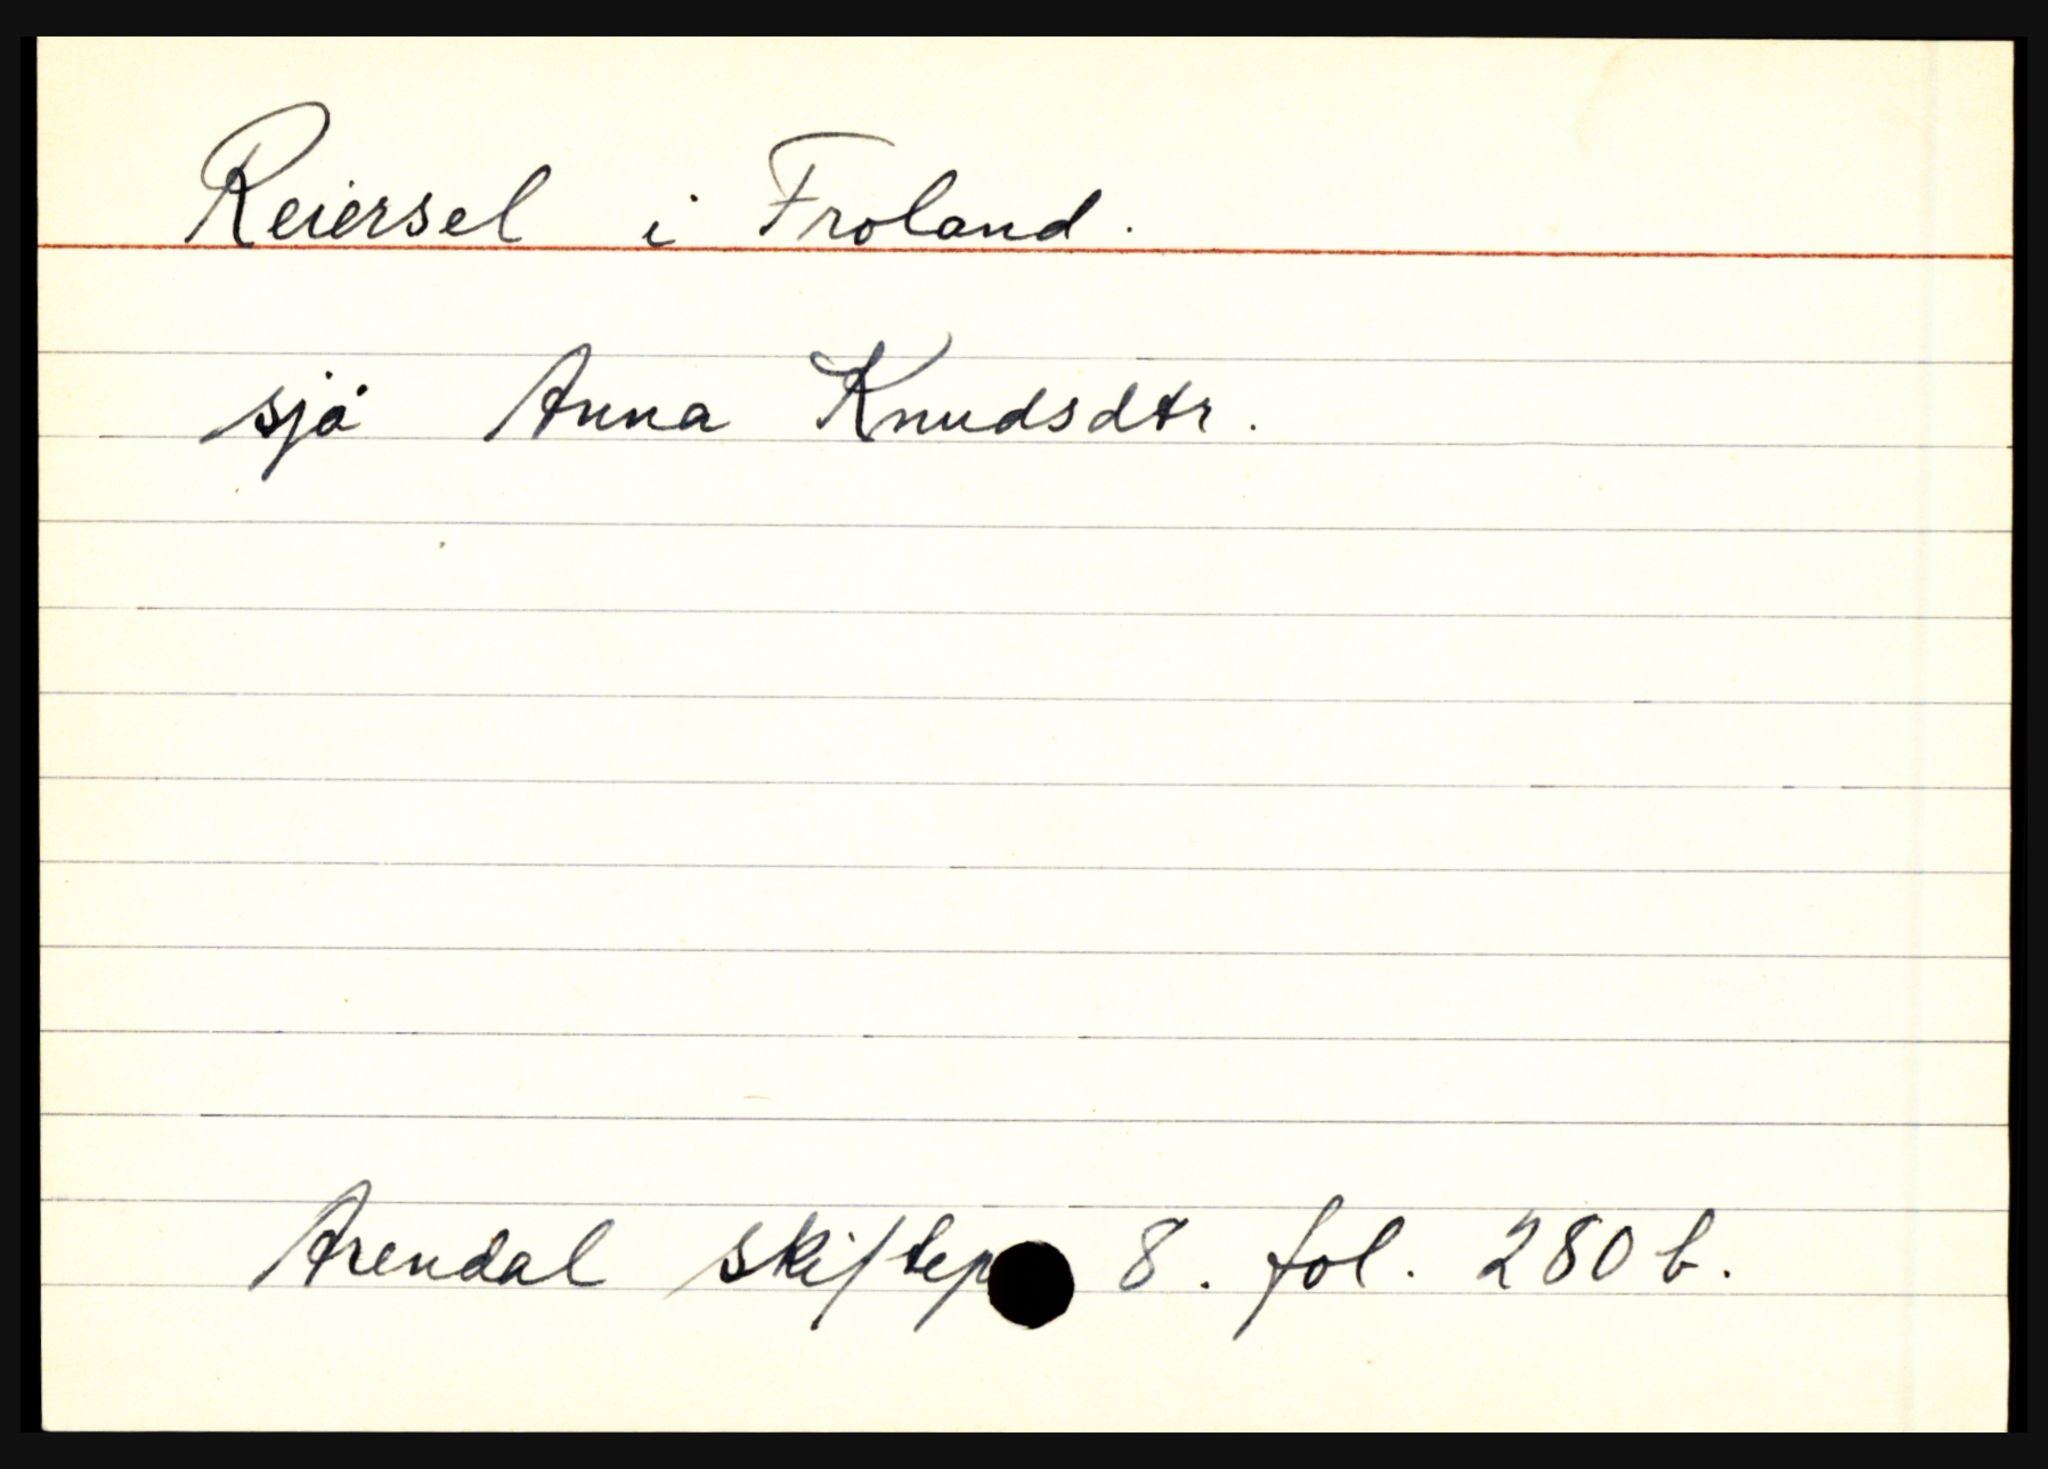 Reiersel i Froland.
sjå Anna Knudsdtr.
Arendal skiftep 8. fol. 280 b.